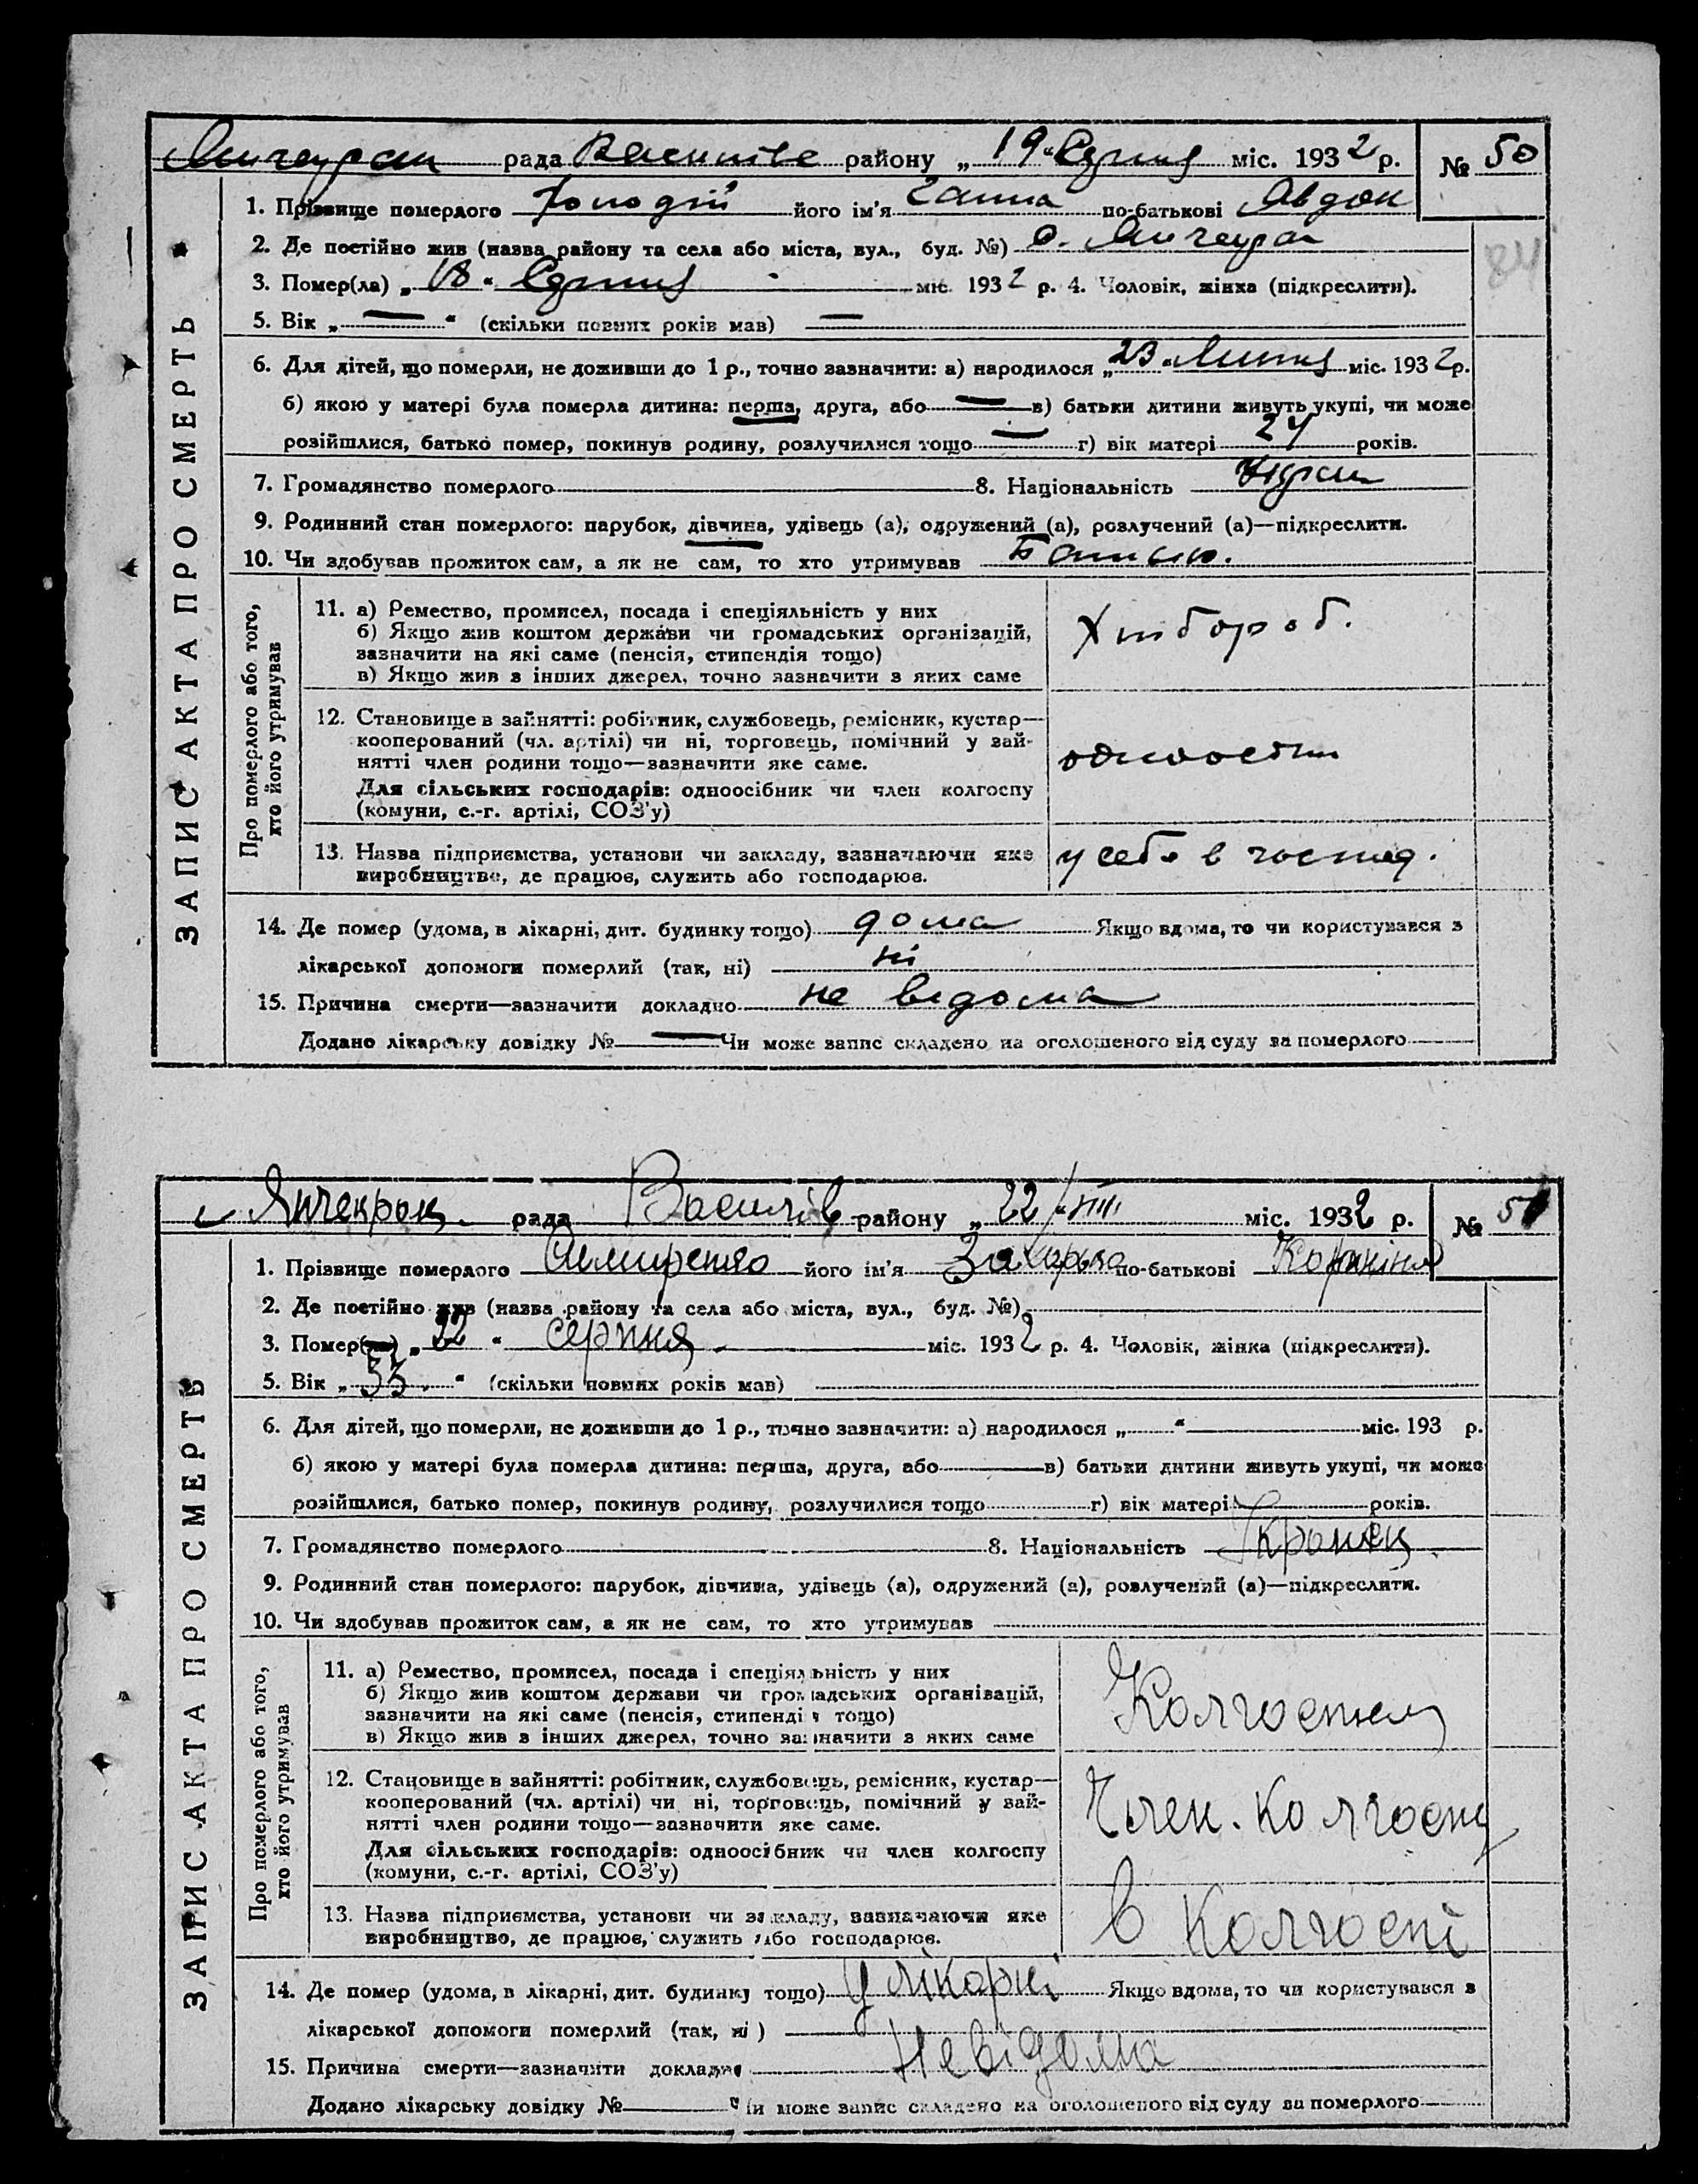 рада Василівс району „ 19 “ Серпня міс. 1932 р. № 50
1. Прізвище померлого його ім'я Ганна по-батькові Авдок
2. Де постійно жив (назва району та села або міста, вул., буд. №) с. Янчекрак
3. Помер(ла) „ 18 “ Серпня міс. 1932 р. 4. Чоловік, жінка (підкреслити).
84
5. Вік „ — “ (скільки повних років мав) —
6. Для дітей, що померли, не доживши до 1 р., точно зазначити: а) народилося „ 23 “ Липня міс. 1932 р.
б) якою у матері була померла дитина: перша, друга, або — в) батьки дитини живуть укупі, чи може
розійшлися, батько помер, покинув родину, розлучилися тощо — г) вік матері 24 років.
7. Громадянство померлого 8. Національність Україн
9. Родинний стан померлого: парубок, дівчина, удівець (а), одружений (а), розлучений (а)—підкреслити.
10. Чи здобував прожиток сам, а як не сам, то хто утримував Батько.
ЗАПИС АКТА ПРО СМЕРТЬ
Про померлого або того,
хто його утримував
11. а) Ремество, промисел, посада і спеціяльність у них
б) Якщо жив коштом держави чи громадських організацій,
зазначити на які саме (пенсія, стипендія тощо)
в) Якщо жив з інших джерел, точно зазначити з яких саме
Хлібороб.
12. Становище в зайнятті: робітник, службовець, ремісник, кустар—
кооперований (чл. артілі) чи ні, торговець, помічний у зай-
нятті член родини тощо—зазначити яке саме.
Для сільських господарів: одноосібник чи член колгоспу
(комуни, с.-г. артілі, СОЗ'у)
одноосібн
13. Назва підприємства, установи чи закладу, зазначаючи яке
виробництво, де працює, служить або господарює.
у себе в господ.
14. Де помер (удома, в лікарні, дит. будинку тощо) дома Якщо вдома, то чи користувався з
лікарської допомоги померлий (так, ні) ні
15. Причина смерти—зазначити докладно не відома
Додано лікарську довідку № — Чи може запис складено на оголошеного від суду за померлого
Янчекрак рада Василів району „ 22 “ VIII міс. 1932 р. № 51
1. Прізвище померлого його ім'я Захарко по-батькові
2. Де постійно жив (назва району та села або міста, вул., буд. №)
3. Помер(ла) „ 22 “ серпня міс. 1932 р. 4. Чоловік, жінка (підкреслити).
5. Вік „ 53. “ (скільки повних років мав)
6. Для дітей, що померли, не доживши до 1 р., точно зазначити: а) народилося „ “ міс. 193 р.
б) якою у матері була померла дитина: перша, друга, або в) батьки дитини живуть укупі, чи може
розійшлися, батько помер, покинув родину, розлучилися тощо г) вік матері років.
7. Громадянство померлого 8. Національність Україн
9. Родинний стан померлого: парубок, дівчина, удівець (а), одружений (а), розлучений (а)—підкреслити.
10. Чи здобував прожиток сам, а як не сам, то хто утримував
ЗАПИС АКТА ПРО СМЕРТЬ
Про померлого або того,
хто його утримував
11. а) Ремество, промисел, посада і спеціяльність у них
б) Якщо жив коштом держави чи громадських організацій,
зазначити на які саме (пенсія, стипендія тощо)
в) Якщо жив з інших джерел, точно зазначити з яких саме
12. Становище в зайнятті: робітник, службовець, ремісник, кустар—
кооперований (чл. артілі) чи ні, торговець, помічний у зай-
нятті член родини тощо—зазначити яке саме.
Для сільських господарів: одноосібник чи член колгоспу
(комуни, с.-г. артілі, СОЗ'у)
Член. колгоспу
13. Назва підприємства, установи чи закладу, зазначаючи яке
виробництво, де працює, служить або господарює.
в колгоспі
14. Де помер (удома, в лікарні, дит. будинку тощо) у лікарні Якщо вдома, то чи користувався з
лікарської допомоги померлий (так, ні)
15. Причина смерти—зазначити докладно Невідома
Додано лікарську довідку № Чи може запис складено на оголошеного від суду за померлого